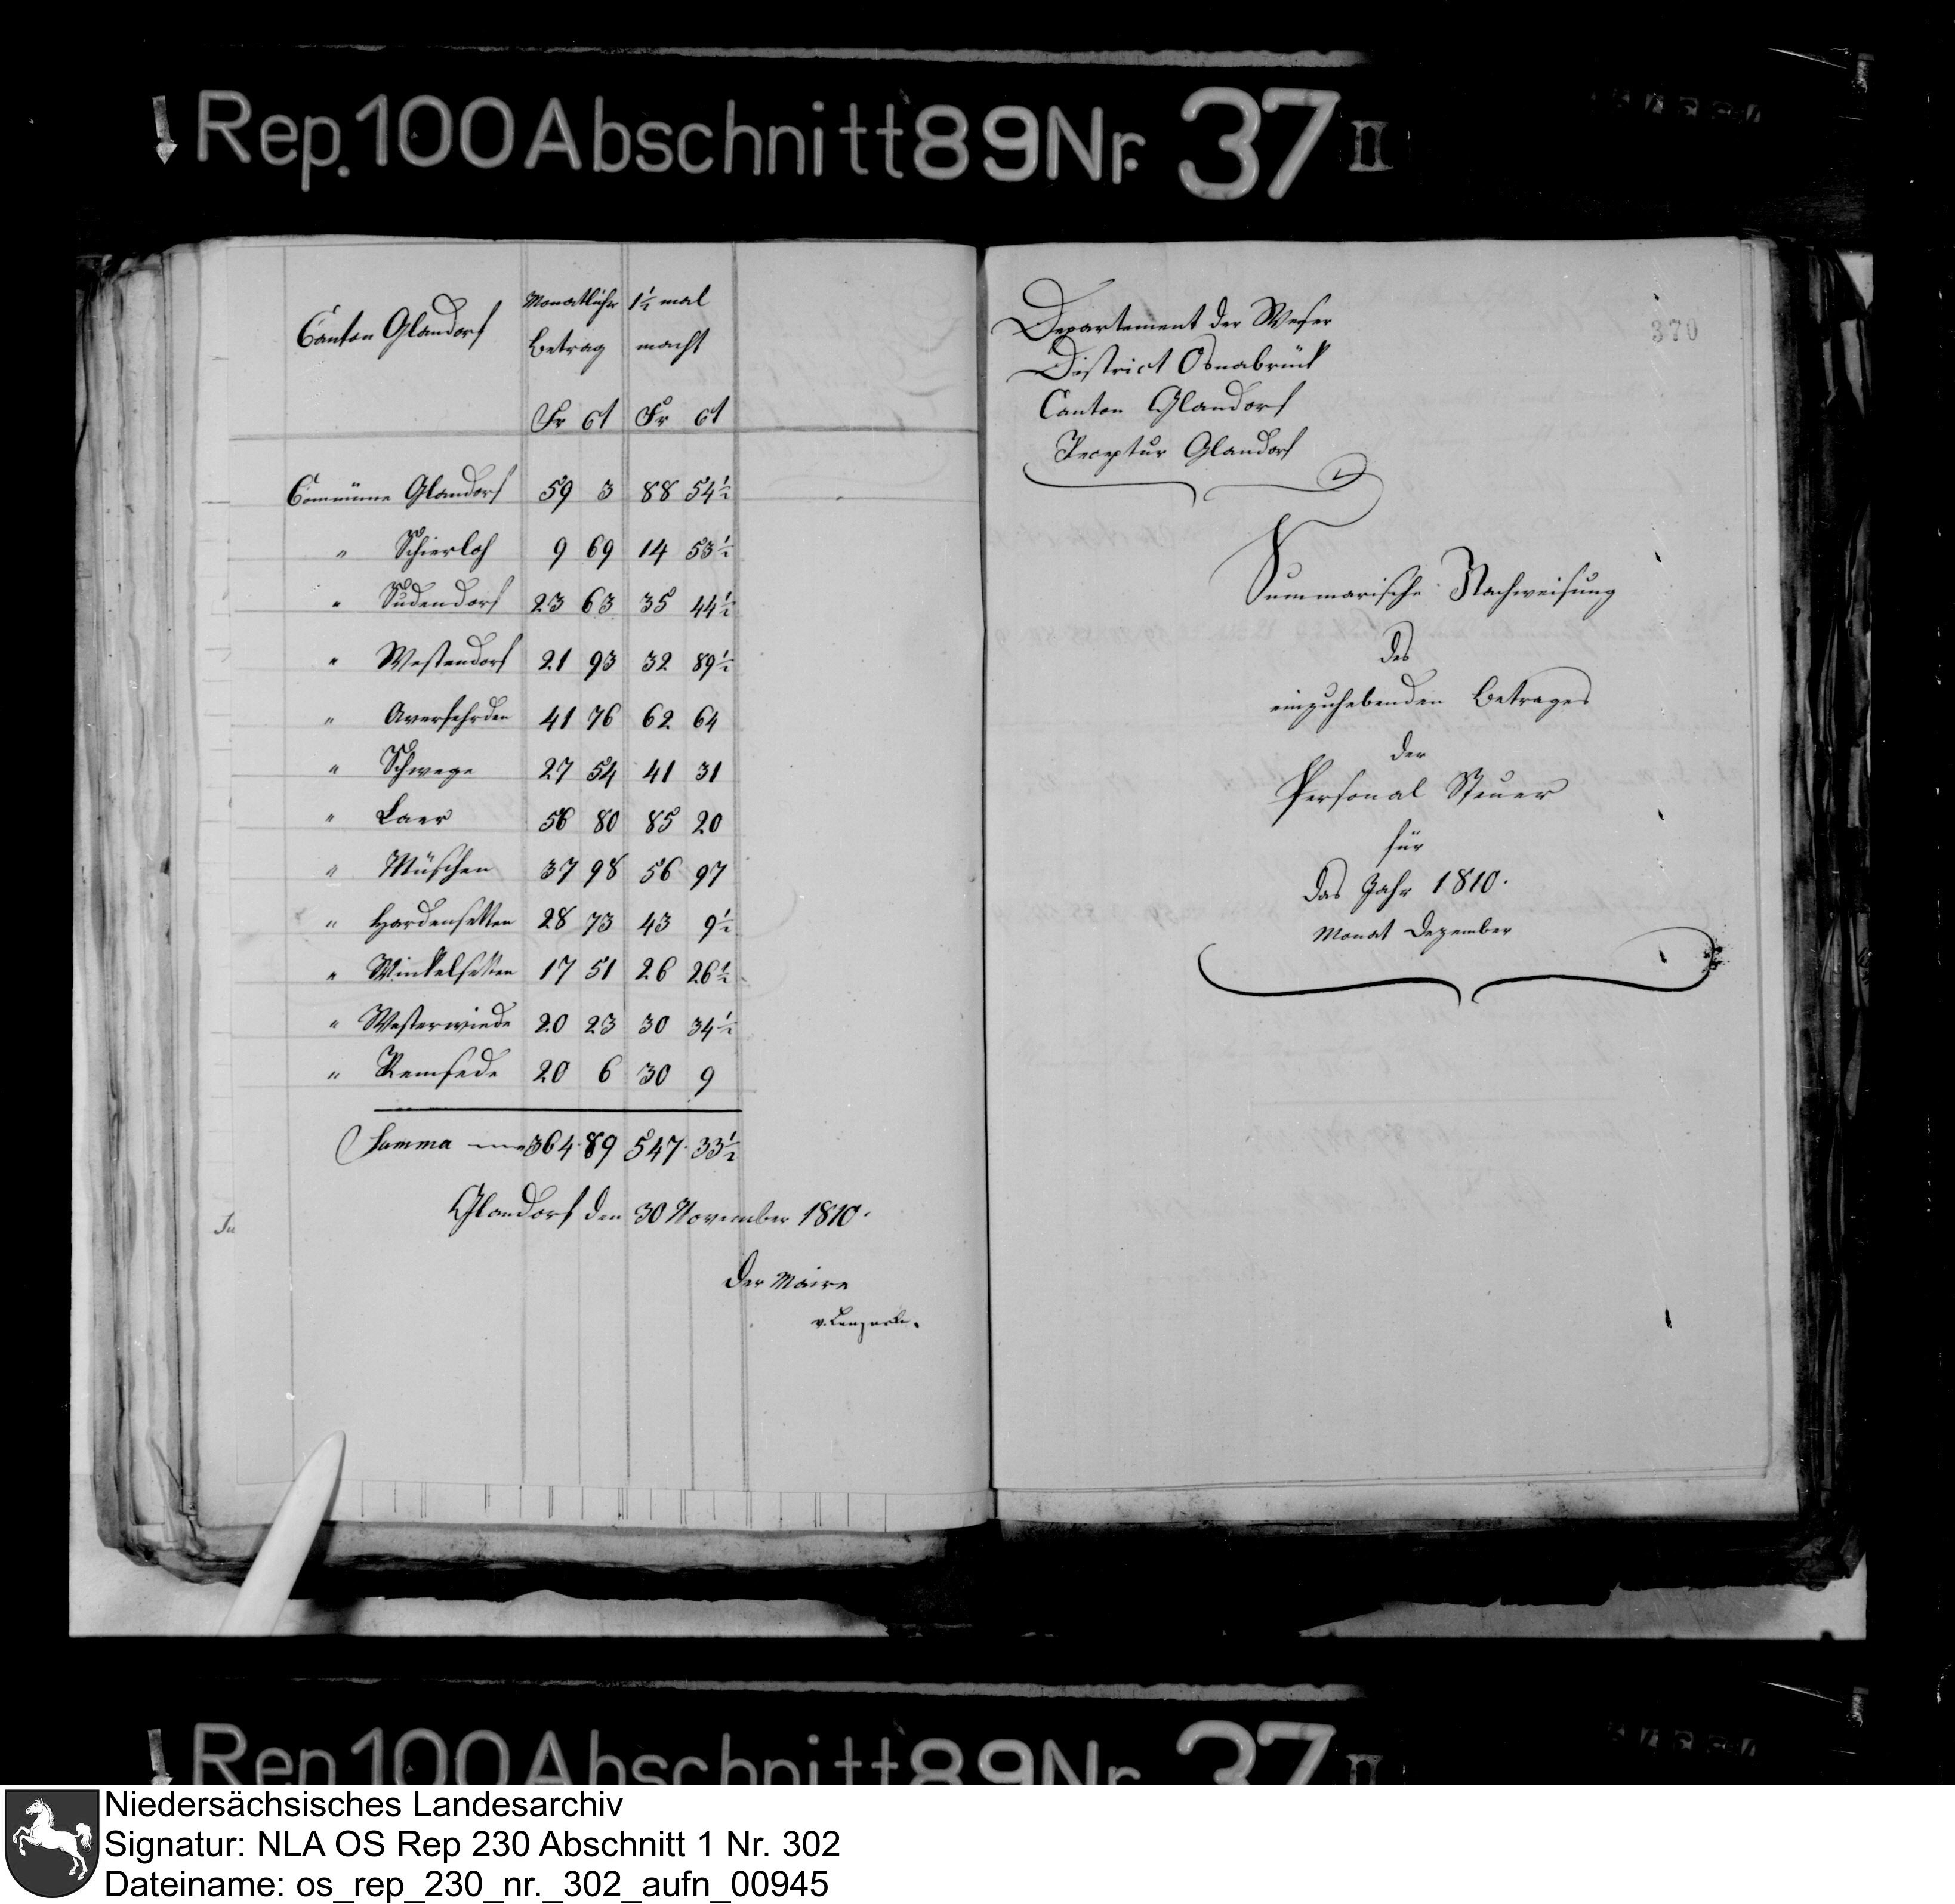 Rep.100Abschnitt89Nr. 37 II
Canton Glandorf
Monatlicher 1½ mal
Betrag macht
Fr Ct Fr Ct
Commüne Glandorf 59 3 88 54½
" Schierloh 9 69 14 53½
" Sudendorf 23 63 35 44½
" Westendorf 21 93 32 89½
" Averfehrden 41 76 62 64
" Schwege 27 54 41 31
" Laer 56 80 85 20
" Müschen 37 98 56 97
" Hardensetten 28 73 43 9½
" Winkelsetten 17 51 26 26½
" Westerwiede 20 23 30 34½
" Remsede 20 6 30 9
Summa 364 89 547 33½
Glandorf den 30 November 1810.
Der Maire
370
Departement der Weser
District Osnabrück
Canton Glandorf
Receptur Glandorf
Summarische Nachweisung
des
einzuhebenden Betrages
der
Personal Steuer
für
das Jahr 1810.
Monat Dezember
Rep.100Abschnitt89Nr. 37 II
Niedersächsisches Landesarchiv
Signatur: NLA OS Rep 230 Abschnitt 1 Nr. 302
Dateiname: os_rep_230_nr._302_aufn_00945